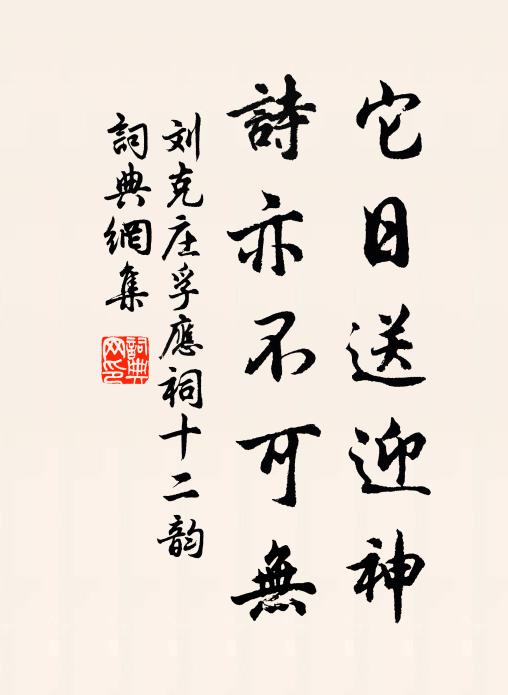 它日送迎神
詩亦不可無
刘克庄孚應祠十二韵
詞典網集
詞典網印